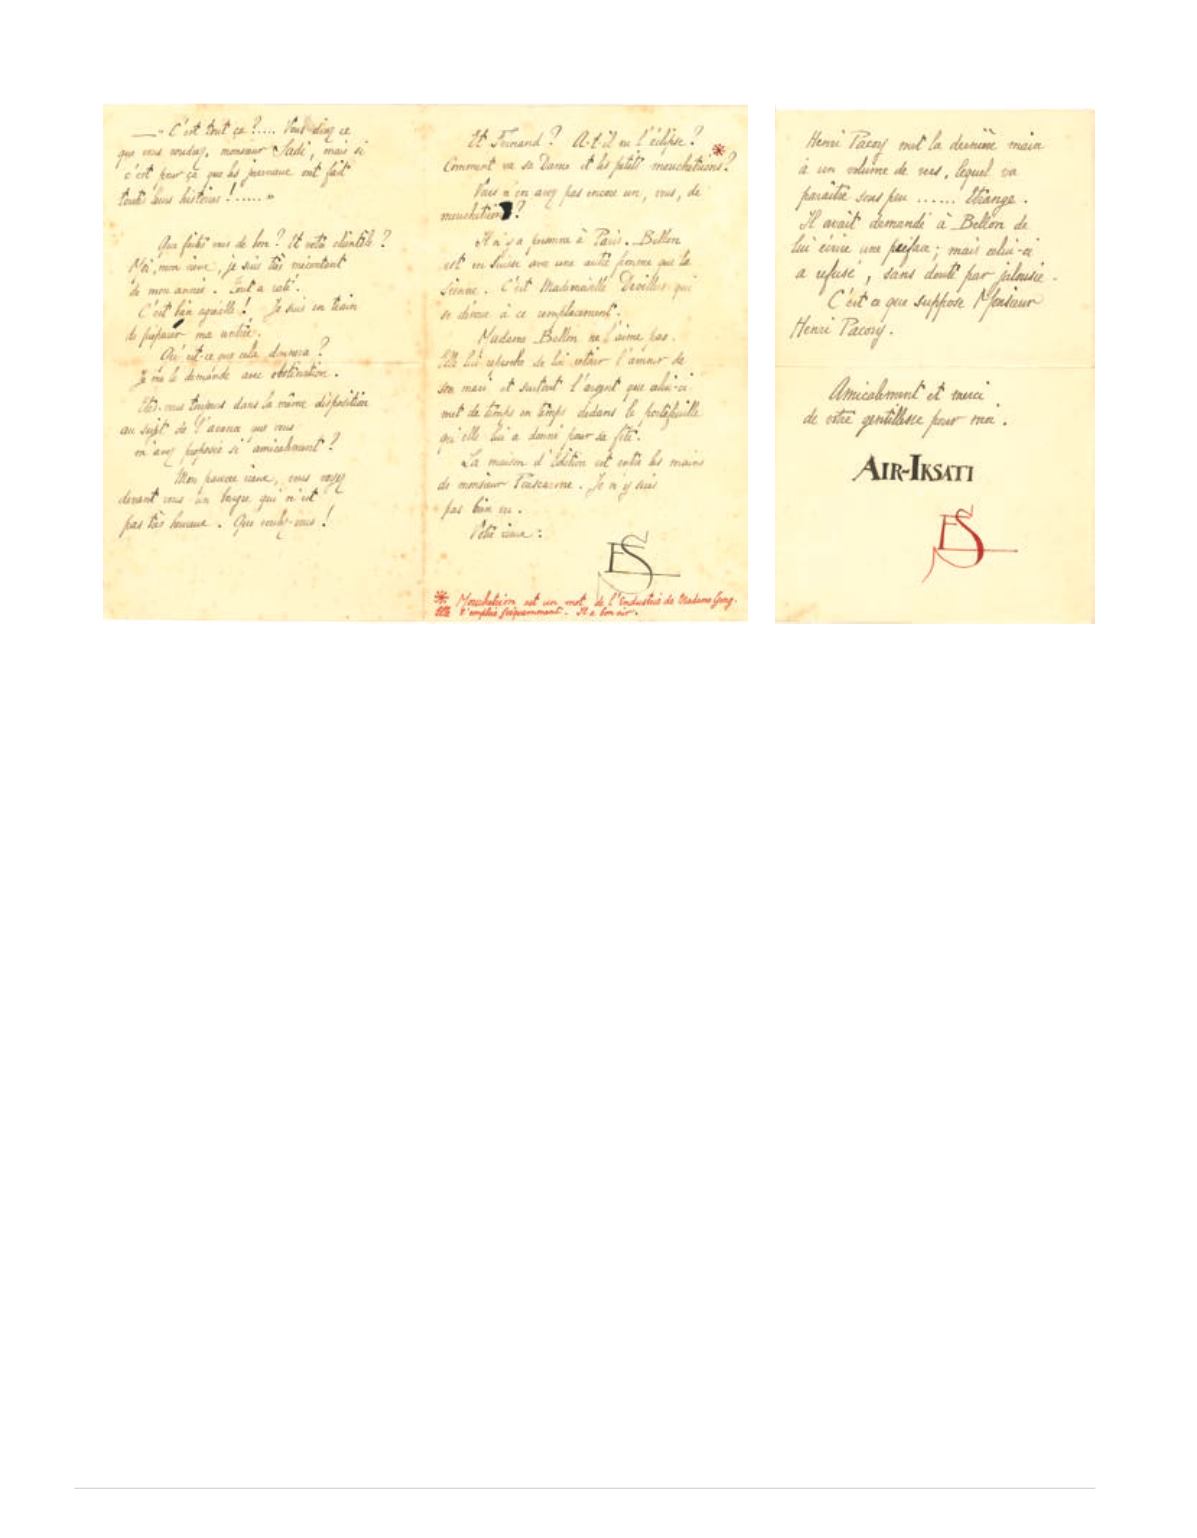 — « C'est tout ça ?.... Vous direz ce
que vous voudrez, monsieur Sadi, mais si
c'est pour ça que les journaux ont fait
toutes leurs histoires !...... »
Que faites vous de bon ? Et votre clientèle ?
Moi, mon vieux, je suis très mécontent
de mon année. Tout a raté.
C'est bien agréable ! Je suis en train
de préparer ma rentrée.
Qu'est-ce que cela donnera ?
Je me le demande avec obstination.
Etes-vous toujours dans la même disposition
au sujet de l'avance que vous
m'avez proposée si amicalement ?
Mon pauvre vieux, vous voyez
devant vous un bougre qui n'est
pas très heureux. Que voulez-vous !
Et Fernand ? A-t-il vu l'éclipse ?
Comment va sa Dame et les petits mouchetrions* ?
Vous n'en avez pas encore un, vous, de
mouchetrion ?
Il n'y a personne à Paris. Bellon
est en Suisse avec une autre femme que la
sienne. C'est Mademoiselle Devillers qui
se dévoue à ce remplacement.
Madame Bellon ne l'aime pas.
Elle lui reproche de lui retirer l'amour de
son mari et surtout l'argent que celui-ci
met de temps en temps dedans le portefeuille
qu'elle lui a donné pour sa fête.
La maison d'Edition est entre les mains
de monsieur . Je n'y suis
pas bien vu.
Votre vieux :
ES
* est un mot de l'industrie de Madame .
Elle l'emploie fréquemment. Il a bon air.
Henri Pacory met la dernière main
à un volume de vers, lequel va
paraître sous peu ...... Etrange.
Il avait demandé à Bellon de
lui écrire une préface ; mais celui-ci
a refusé, sans doute par jalousie.
C'est ce que suppose Monsieur
Henri Pacory.
Amicalement et merci
de votre gentillesse pour moi.
AIR-IKSATI
ES